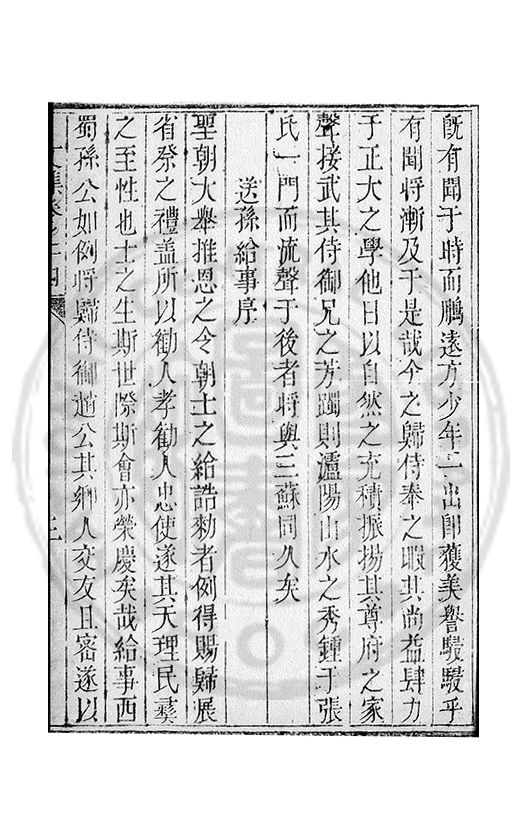 既有聞于時而鵬遠方少年一出即獲美譽駸駸乎
有聞將漸及于是哉今之歸侍奉之暇其尚益肆力
于正大之學他日以自然之充積振揚其尊府之家
聲接武其侍御兄之芳躅則瀘陽山水之秀鍾于張
氏一門而流聲于後者將與三蘇同久矣
送孫給事序
聖朝大舉推恩之令朝士之給誥勑者例得賜歸展
省祭之禮蓋所以勸人孝勸人忠使遂其天理民彝
之至性也士之生斯世際斯會亦榮慶矣哉給事西
蜀孫公如例將歸侍御趙公其鄉人交友且密遂以
文集卷之十四